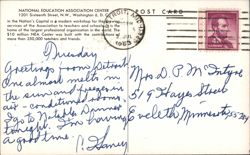 NATIONAL EDUCATION ASSOCIATION CENTER
1201 Sixteenth Street, N.W., Washington 6, D. C.
in the Nation's Capital is a modern workshop for the
service of the Association to teachers and
home of the largest professional organization in the world. The
$10 million NEA Center was built with the contributions of
more than 250,000 teachers and friends.
POST CARD
Tuesday
Greetings from Detroit
One almost melts in
the sun and freezes in
air-conditioned rooms
Go to
tonight. Am having
a good time.
Mrs D. P. McIntyre
519 Hayes Street
Eveleth Minnesota